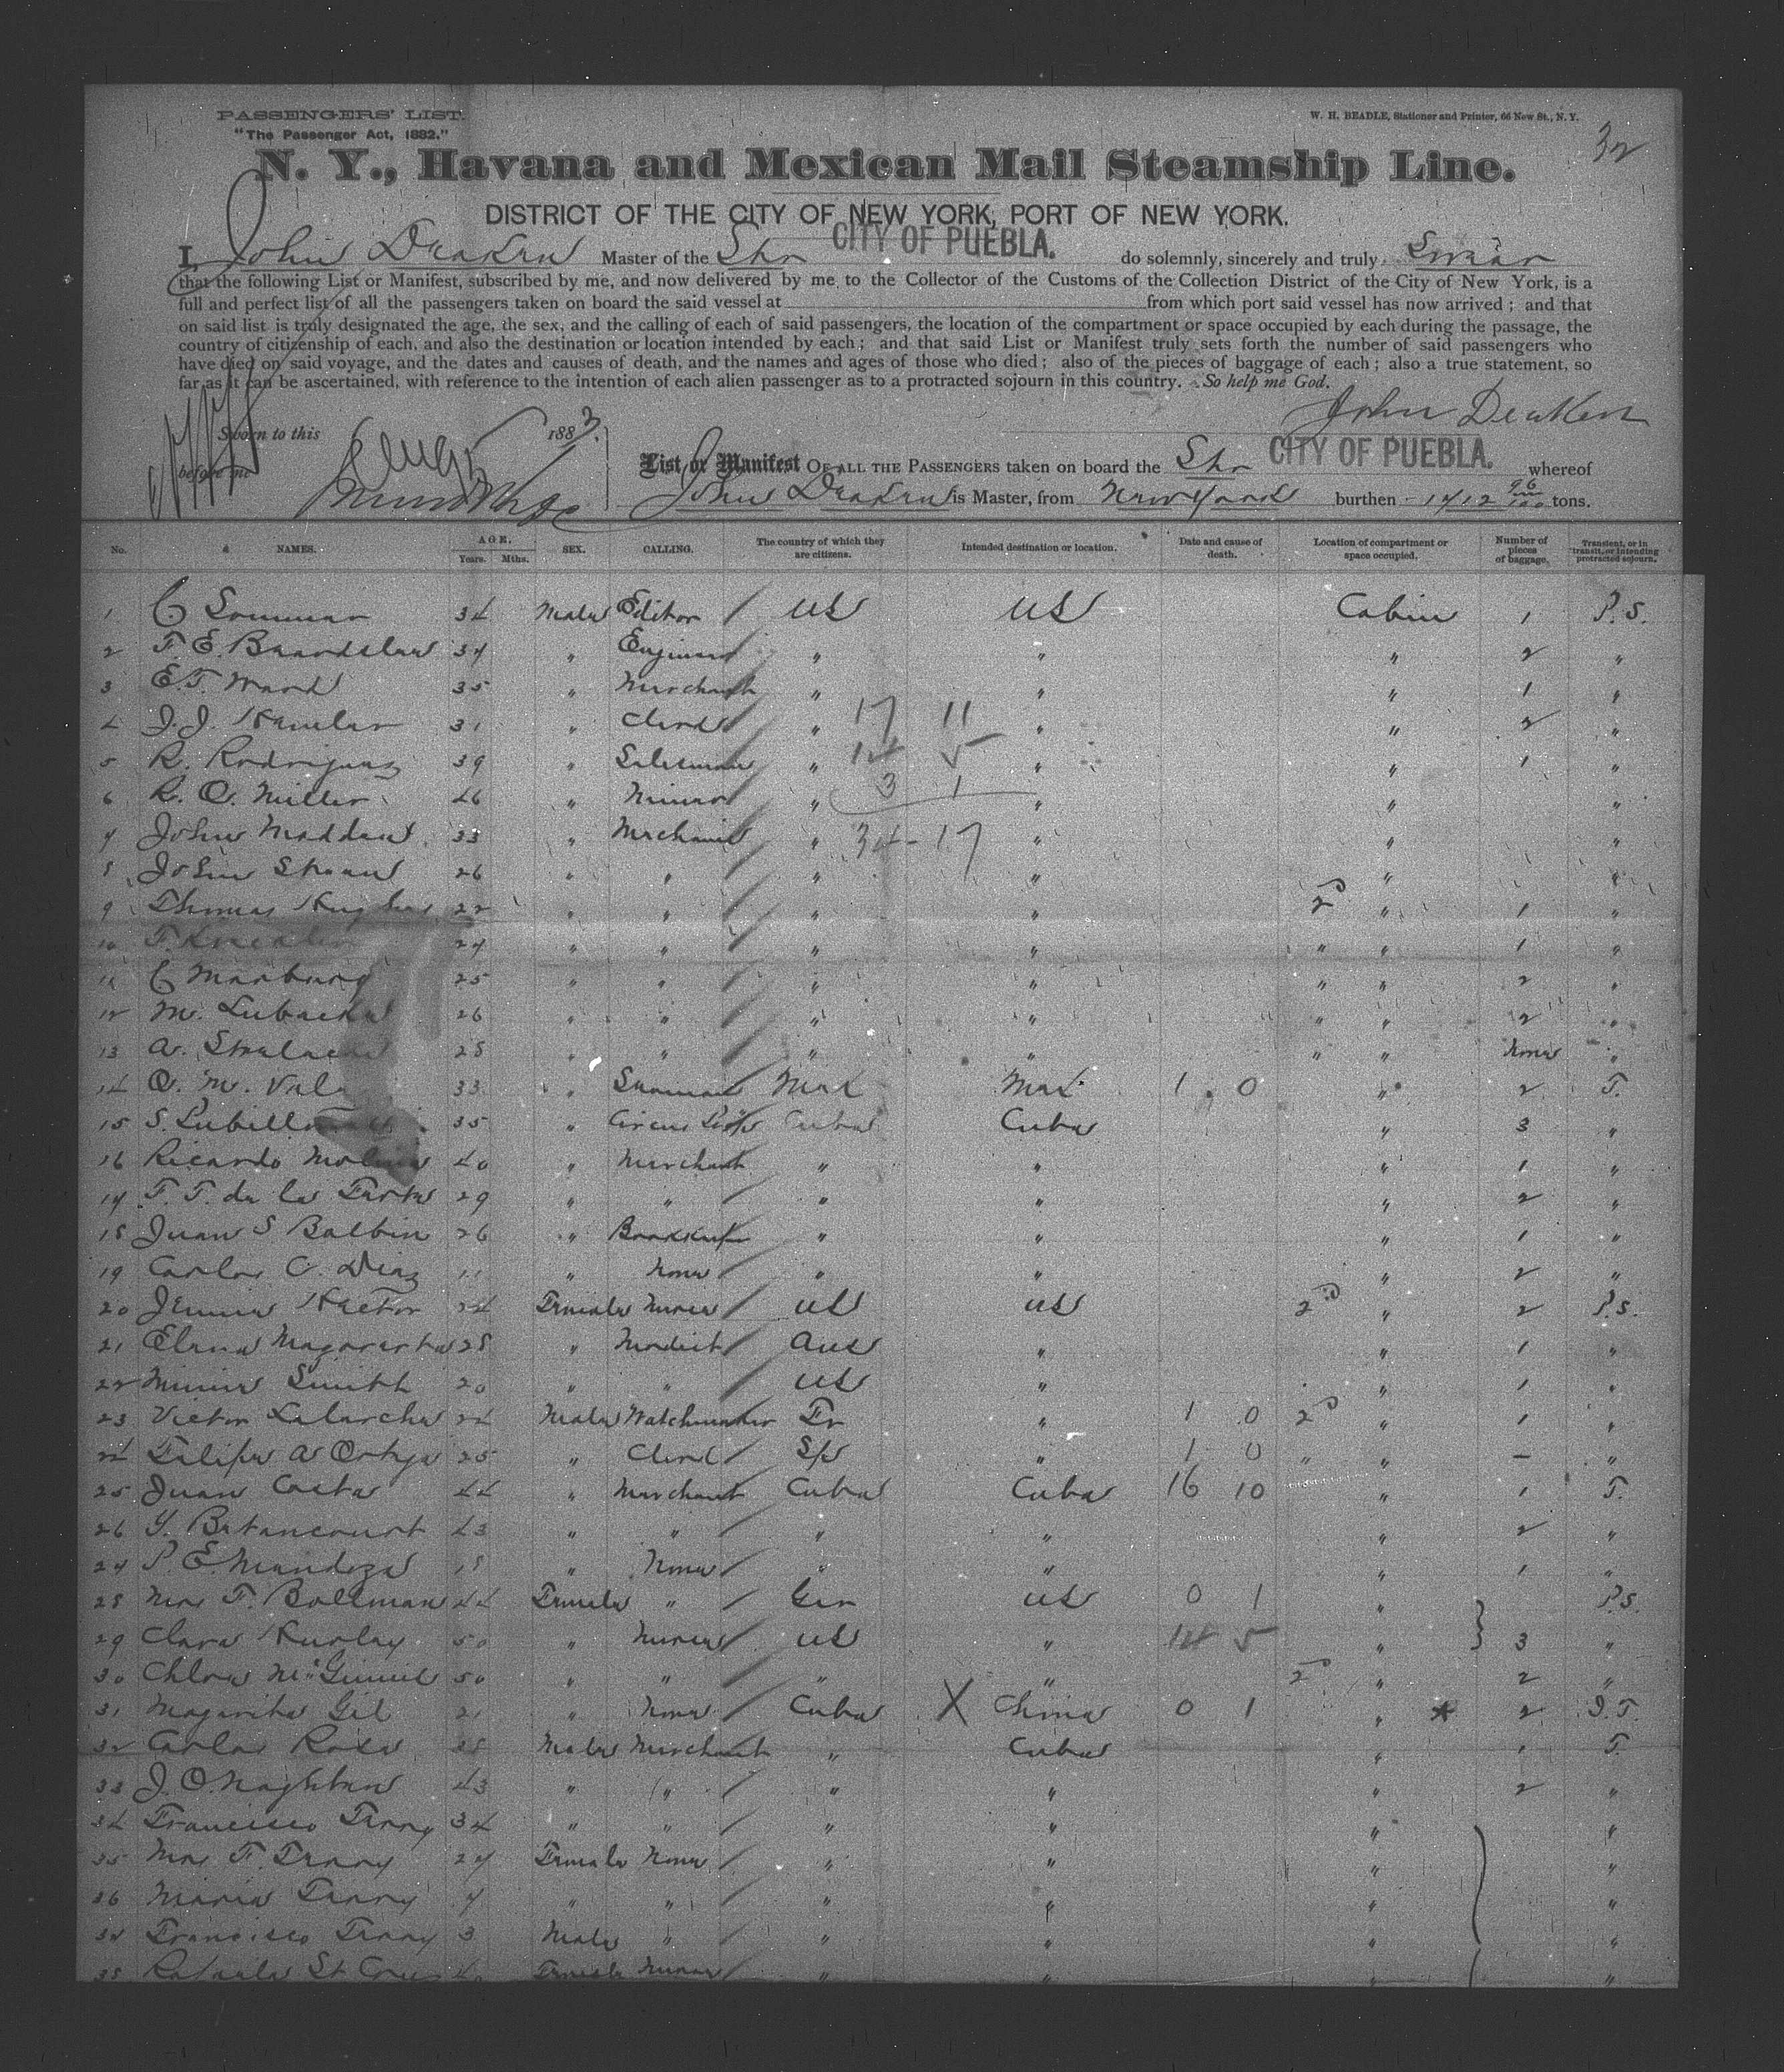 PASSENGERS' LIST.
"The Passenger Act, 1882."
W. H. BEADLE, Stationer and Printer, 66 New St., N. Y.
32
N. Y., Havana and Mexican Mail Steamship Line.
DISTRICT OF THE CITY OF NEW YORK, PORT OF NEW YORK.
I, John Deaken Master of the Str CITY OF PUEBLA. do solemnly, sincerely and truly Swear
that the following List or Manifest, subscribed by me, and now delivered by me to the Collector of the Customs of the Collection District of the City of New York, is a
full and perfect list of all the passengers taken on board the said vessel at from which port said vessel has now arrived; and that
on said list is truly designated the age, the sex, and the calling of each of said passengers, the location of the compartment or space occupied by each during the passage, the
country of citizenship of each, and also the destination or location intended by each; and that said List or Manifest truly sets forth the number of said passengers who
have died on said voyage, and the dates and causes of death, and the names and ages of those who died; also of the pieces of baggage of each; also a true statement, so
far as it can be ascertained, with reference to the intention of each alien passenger as to a protracted sojourn in this country. So help me God.
John Deaken
Sworn to this 1883.
before me
List or Manifest OF ALL THE PASSENGERS taken on board the Str CITY OF PUEBLA. whereof
John Deaken is Master, from New York burthen 1712 96/100 tons.
No. NAMES. AGE. Years. Mths. SEX. CALLING. The country of which they are citizens. Intended destination or location. Date and cause of death. Location of compartment or space occupied. Number of pieces of baggage. Transient, or in transit, or intending protracted sojourn.
1 C Sommer 34 Male Editor / US US Cabin 1 P.S.
2 F. E. Beardslaw 37 " Engineer / " " " 2 "
3 E. T. Ward 35 " Merchant " " " 1 "
4 J. J. 31 " Clerk / " 17 11 " " 2 "
5 R. Rodriguez 39 " Salesman / " 14 5 " " 1 "
6 R. O. Miller 46 " Miner / " 3 1 " " "
7 John Madden 33 " Mechanic / " 34 - 17 " " "
8 John 26 " " / " " " "
9 Thomas Hughes 22 " " / " " 2d " 1 "
10 F. 27 " " / " " " " 1 "
11 C Marburg 25 " " / " " " " 2 "
12 M. 26 " " / " " " " 2 "
13 A. 28 " " / " " " " None "
14 O. M. 33 " Seaman Mex Mex 1 0 " 2 T.
15 S. 35 " Circus Cuba Cuba " 3 "
16 Ricardo 40 " Merchant " " " 1 "
17 F. F. de la 29 " " / " " " 2 "
18 Juan S Balbin 26 " Bookkeeper " " " 1 "
19 Carlos C. Diaz 11 " None / " " " 2 "
20 Jennie Hector 24 Female Nurse / US US 2d " 2 P.S.
21 Elena Magarerta 28 " Modist / Aus " " 1 "
22 Minnie Smith 20 " " / US " " 1 "
23 Victor 24 Male Watchmaker Fr " 1 0 2d " 1 "
24 Felipe A Ortega 25 " Clerk / Sp " 1 0 " " — "
25 Juan Costa 44 " Merchant Cuba Cuba 16 10 " 1 T.
26 Y. Betancourt 43 " " / " " " 2 "
27 P. E. Mendoza 18 " None / " " " 1 "
28 Mrs F. Bollman 44 Female " / Ger US 0 1 " P.S.
29 Clara Hurlay 50 " Nurse / US " 14 5 " 3 "
30 Chloe 50 " " / " " 2d " 2 "
31 Magarita Gil 21 " None / Cuba X China 0 1 " * 2 I.T.
32 Carlos Rosa 38 Male Merchant " Cuba " 1 T.
33 J. O Naghten 43 " " / " " " 2 "
34 Francisco Terry 34 " " / " " " "
35 Mrs F. Terry 27 Female None / " " " "
36 Maria Terry 7 " " / " " " "
37 Francisco Terry 3 Male " / " " " "
38 Rafaela St Cruz 40 Female Nurse " " " "